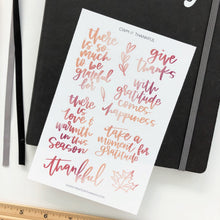 CWM // THANKFUL
there
is so
much
to be
grateful
for
give
thanks
with
gratitude
comes
happiness
there is
love &
warmth
in this
season
take a
moment for
gratitude
thankful